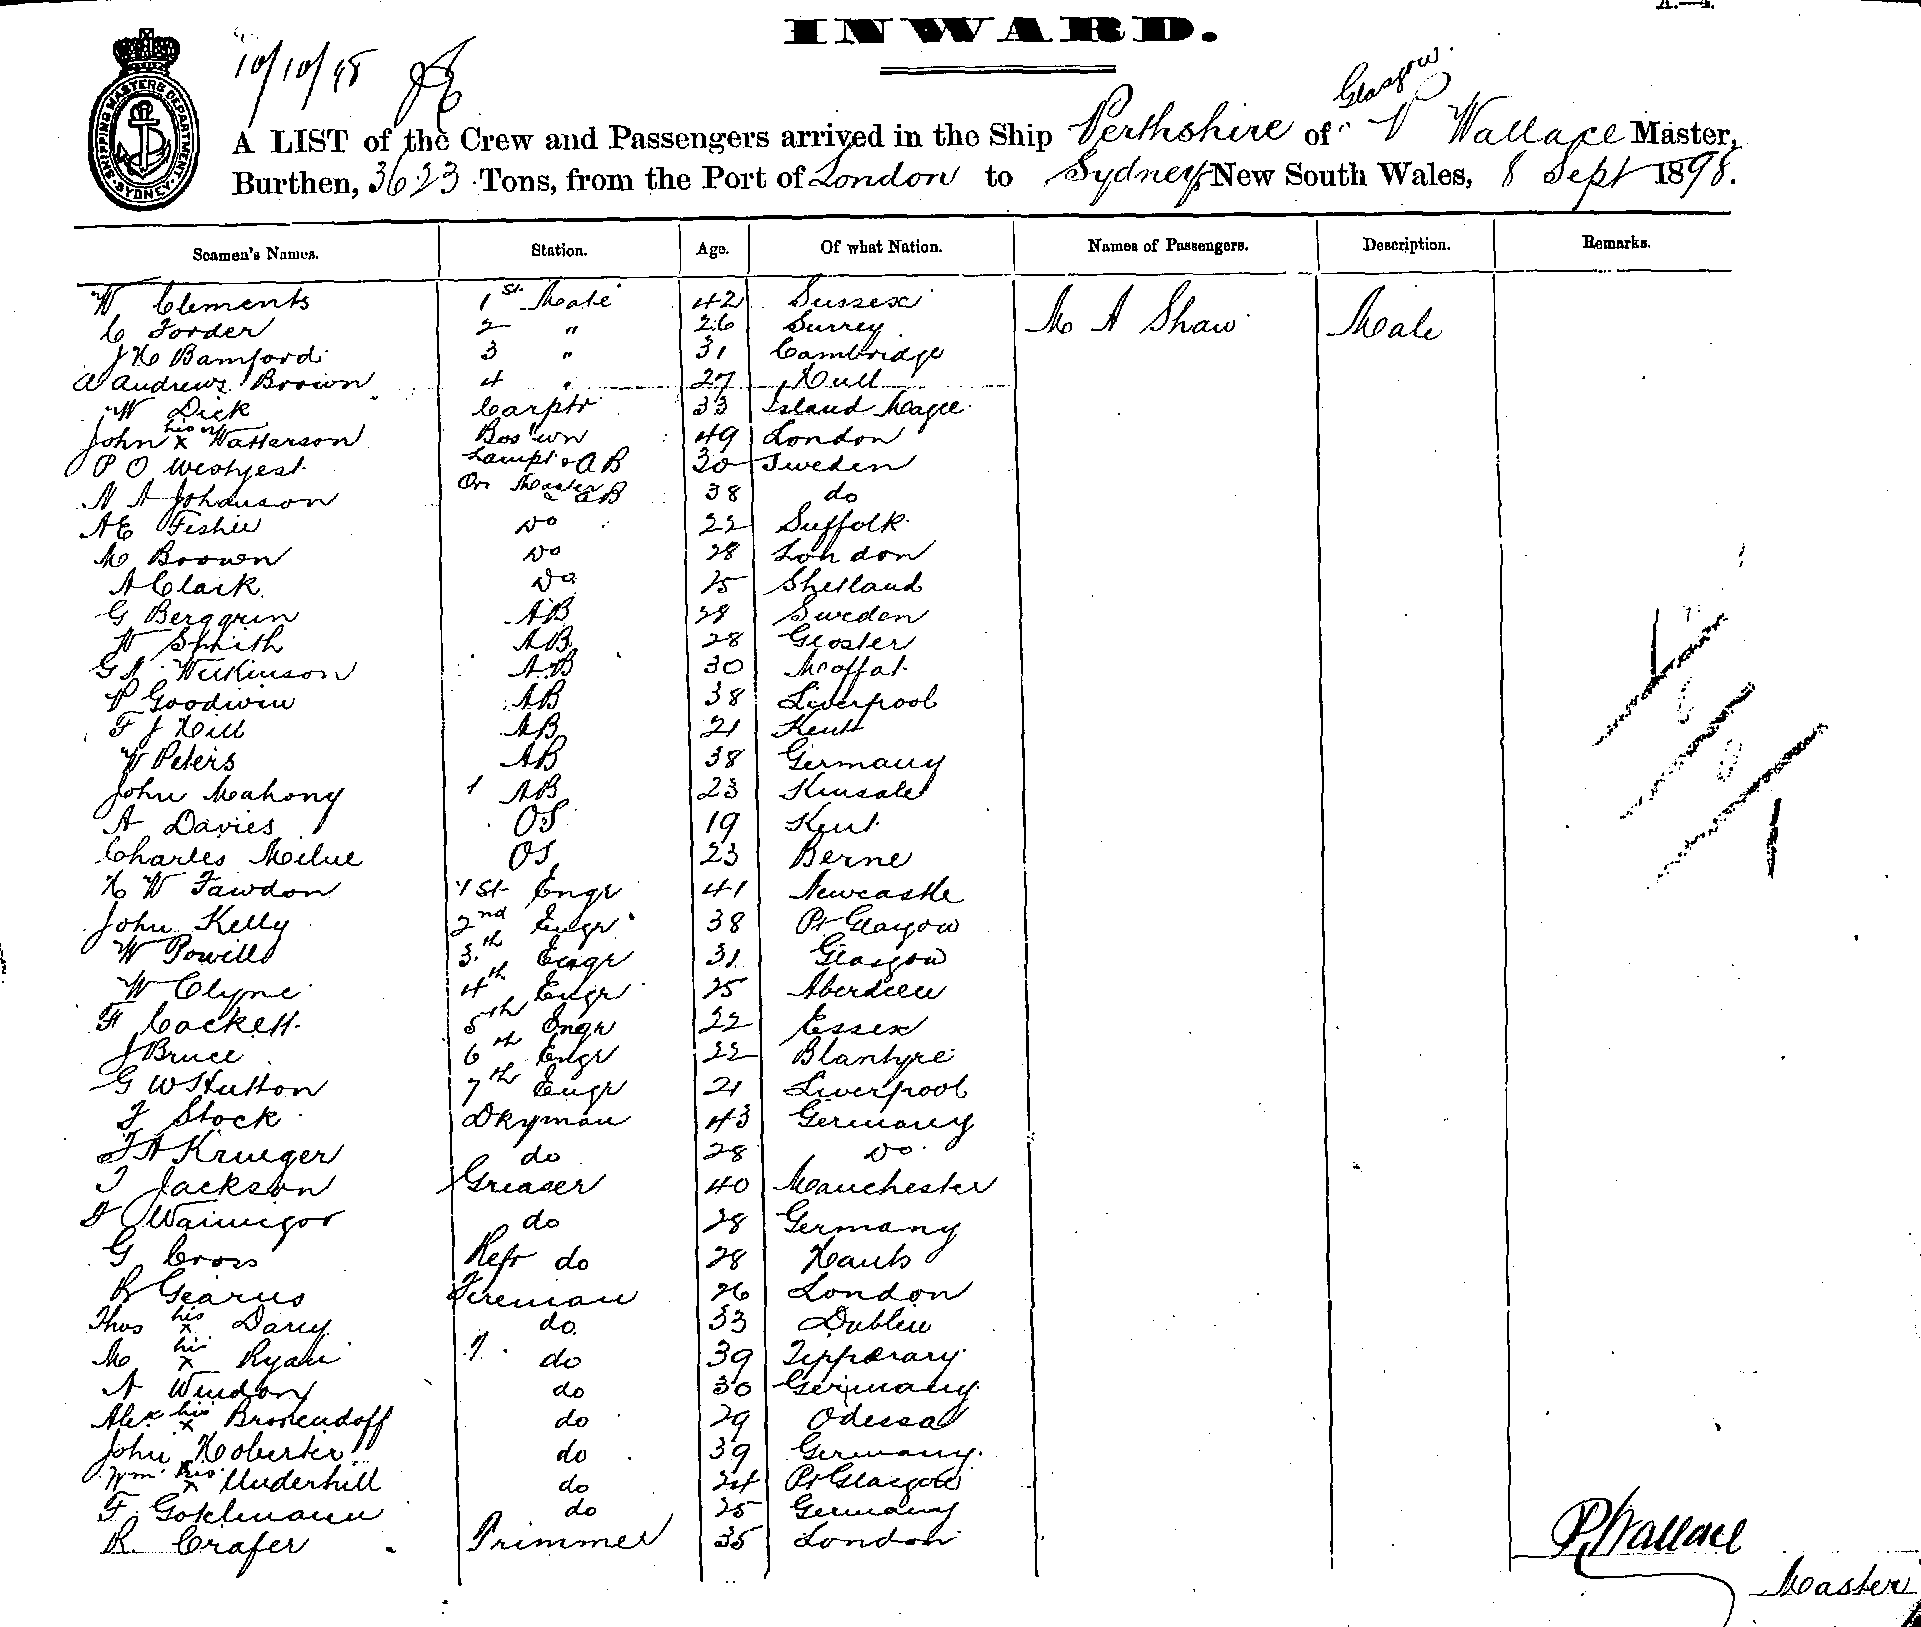 INWARD.
10/10/98
SHIPPING MASTERS DEPARTMENT SYDNEY
Glasgow
A LIST of the Crew and Passengers arrived in the Ship Perthshire of P Wallace Master,
Burthen, 3623 Tons, from the Port of London to Sydney New South Wales, 8 Sept 1898.
Seamen's Names. Station. Age. Of what Nation. Names of Passengers. Description. Remarks.
W Clements 1st Mate 42 Sussex M A Shaw Male
C Forder 2 " 26 Surrey
J H Bamford 3 " 31 Cambridge
A Andrews Brown 4 " 27 Hull
W Dick Carptr 33 Island Magee
John his x Watterson Bos'wn 49 London
P O Westjest Lampt & AB 30 Sweden
N A Johanson Qr Master & AB 38 do
A E Fisher Do 22 Suffolk
M Brown Do 28 London
A Clark Do 25 Shetland
G Berggrin AB 28 Sweden
W Smith AB 28 Gloster
G J Wilkinson AB 30 Moffat
P Goodwin AB 38 Liverpool
F J Hill AB 21 Kent
W Peters AB 38 Germany
John Mahony 1 AB 23 Kinsale
A Davies OS 19 Kent
Charles Milne OS 23 Berne
H W Fawdon 1st Engr 41 Newcastle
John Kelly 2nd Engr 38 Pt Glasgow
W Powell 3th Engr 31 Glasgow
W Clyne 4th Engr 25 Aberdeen
F Cockett 5th Engr 22 Essex
J Bruce 6th Engr 22 Blantyre
G W Hutton 7th Engr 21 Liverpool
F Stock Dkyman 43 Germany
F A Krueger do 28 Do
T Jackson Greaser 40 Manchester
do 28 Germany
G Cross Refr do 28 Hants
R Gearus Fireman 26 London
Thos his x Darcy do 33 Dublin
M his x Ryan 1 do 39 Tipperary
A Windon do 30 Germany
Alex his x Bronendoff do 29 Odessa
John Hoberter do 39 Germany
Wm his x Underhill do 24 Pt Glasgow
F Gohlmann do 25 Germany
R Crafer Trimmer 35 London
P Wallace
Master